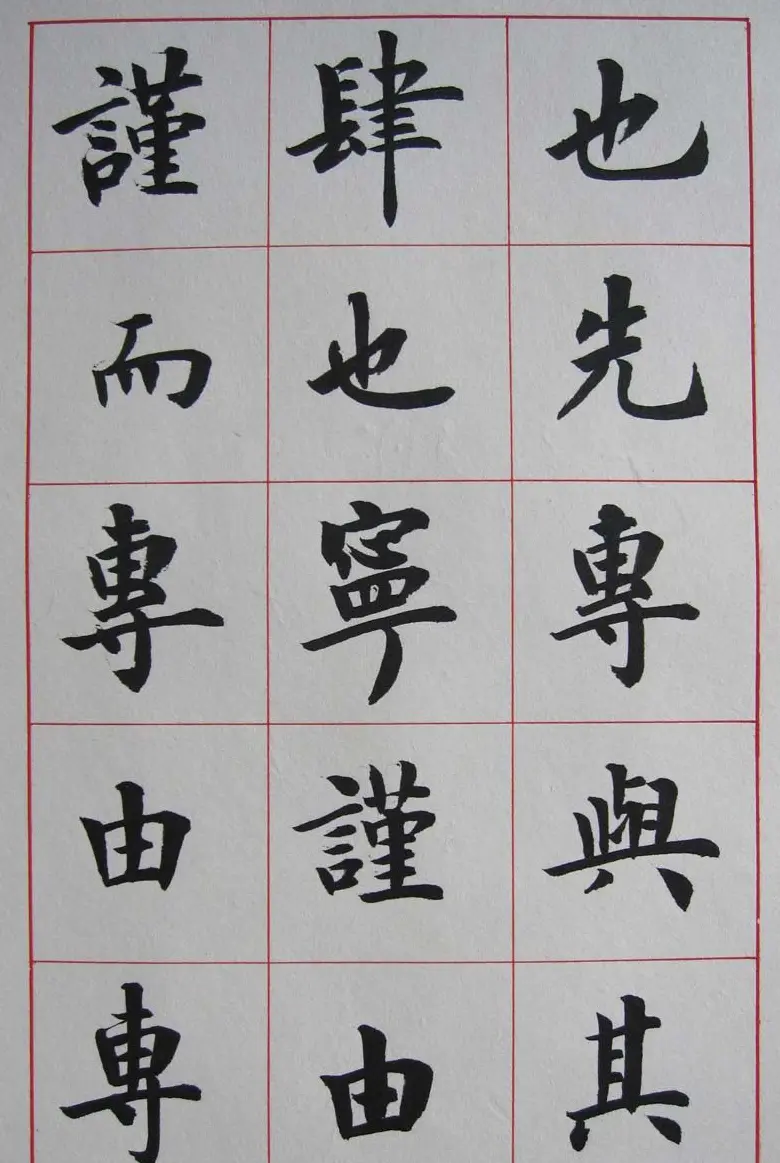 也先專與其
肆也寧謹由
謹而專由專